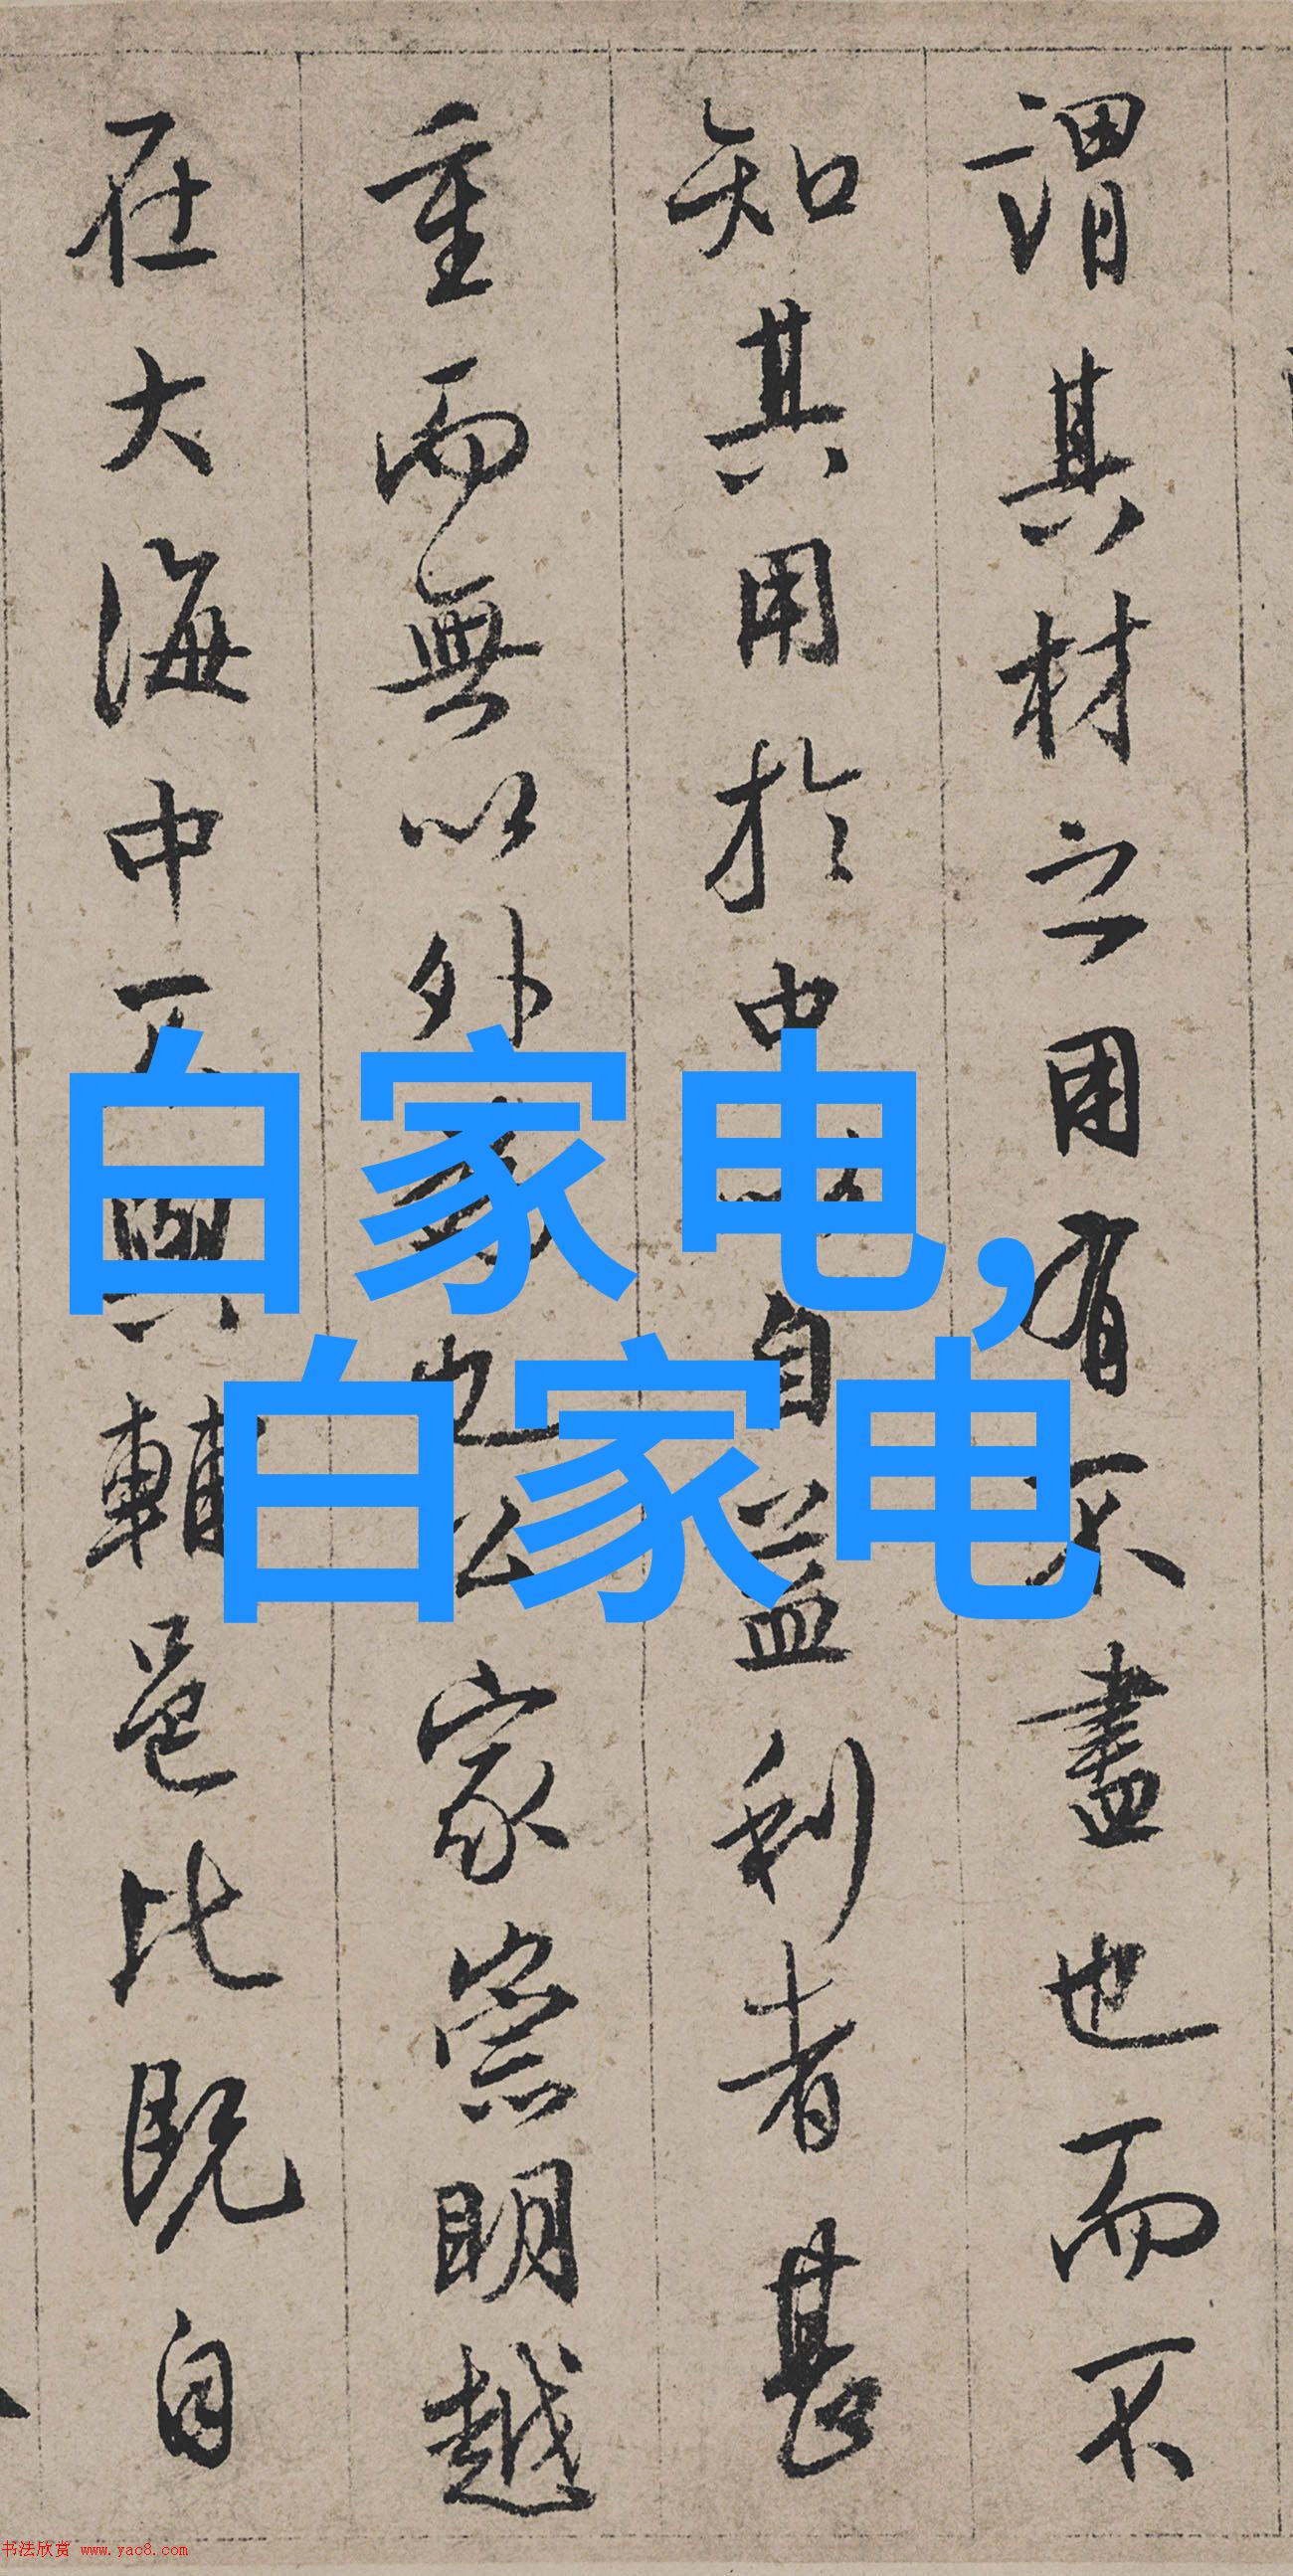 謂其材之用有不盡也而不
知其用於中自益利者甚
重而無以外也公家崇明越
在大海中不與輔邑比既自
白家电,
白家电
书法欣赏 www.yac8.com